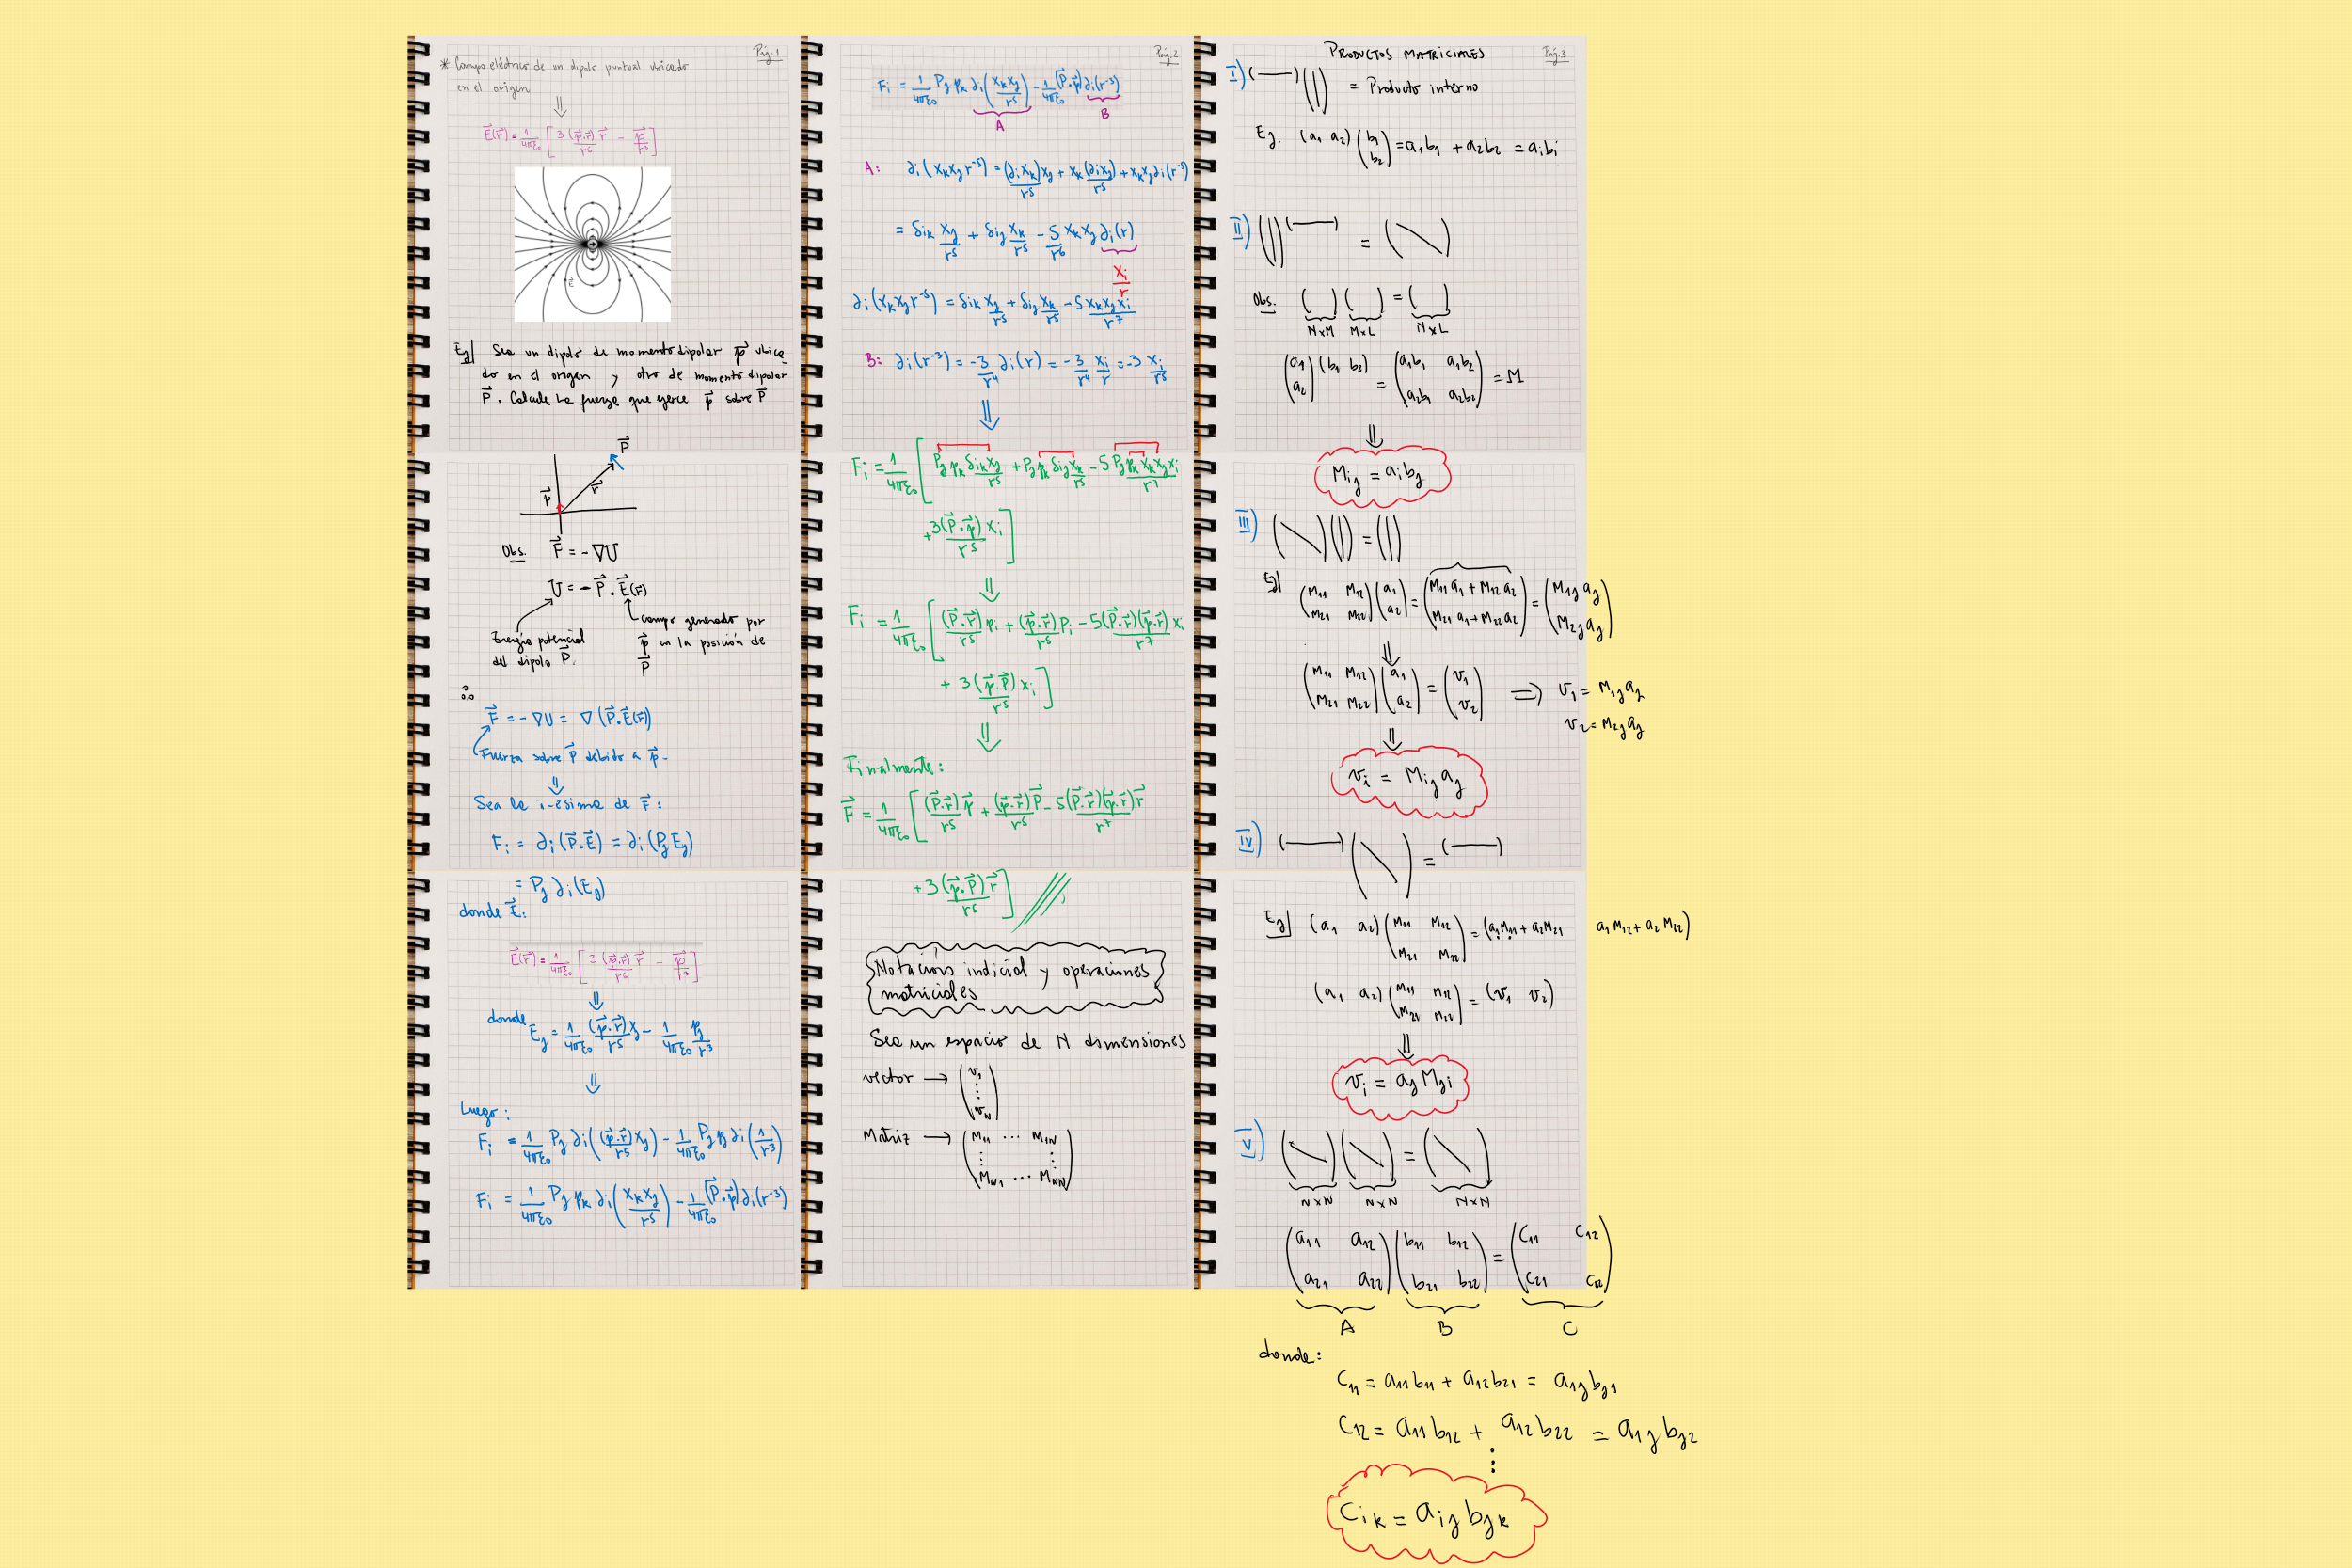 Pág. 1
* Campo eléctrico de un dipolo puntual ubicado
en el origen
⇓
E⃗(r⃗) = 1/4πε₀ [ 3(p⃗.r⃗)r⃗/r⁵ − p⃗/r³ ]
E⃗
Ej| Sea un dipolo de momento dipolar p⃗ ubica
do en el origen y otro de momento dipolar
P⃗. Calcule la fuerza que ejerce p⃗ sobre P⃗
P⃗
p⃗ r⃗
Obs. F⃗ = −∇U
U = −P⃗.E⃗(r⃗)
Energía potencial
del dipolo P⃗.
campo generado por
p⃗ en la posición de
P⃗
∴
F⃗ = −∇U = ∇(P⃗.E⃗(r⃗))
Fuerza sobre P⃗ debido a p⃗.
⇓
Sea la i-ésima de F⃗:
Fi = ∂i(P⃗.E⃗) = ∂i(PjEj)
= Pj ∂i(Ej)
donde E⃗:
E⃗(r⃗) = 1/4πε₀ [ 3(p⃗.r⃗)r⃗/r⁵ − p⃗/r³ ]
⇓
donde Ej = 1/4πε₀ (p⃗.r⃗)xj/r⁵ − 1/4πε₀ pj/r³
⇓
Luego:
Fi = 1/4πε₀ Pj ∂i((p⃗.r⃗)xj/r⁵) − 1/4πε₀ Pj pj ∂i(1/r³)
Fi = 1/4πε₀ Pj pk ∂i(xkxj/r⁵) − 1/4πε₀ (P⃗.p⃗)∂i(r⁻³)
Pág. 2
Fi = 1/4πε₀ Pj pk ∂i(xkxj/r⁵) − 1/4πε₀ (P⃗.p⃗)∂i(r⁻³)
A B
A: ∂i(xkxj r⁻⁵) = (∂ixk)xj/r⁵ + xk(∂ixj)/r⁵ + xkxj∂i(r⁻⁵)
= δik xj/r⁵ + δij xk/r⁵ − 5/r⁶ xkxj ∂i(r)
xi/r
∂i(xkxj r⁻⁵) = δik xj/r⁵ + δij xk/r⁵ − 5xkxjxi/r⁷
B: ∂i(r⁻³) = −3/r⁴ ∂i(r) = −3/r⁴ xi/r = −3 xi/r⁵
⇓
Fi = 1/4πε₀ [ Pj pk δik xj/r⁵ + Pj pk δij xk/r⁵ − 5 Pj pk xk xj xi/r⁷
+ 3(P⃗.p⃗)xi/r⁵ ]
⇓
Fi = 1/4πε₀ [ (P⃗.r⃗)pi/r⁵ + (p⃗.r⃗)Pi/r⁵ − 5(P⃗.r⃗)(p⃗.r⃗)xi/r⁷
+ 3(p⃗.P⃗)xi/r⁵ ]
⇓
Finalmente:
F⃗ = 1/4πε₀ [ (P⃗.r⃗)p⃗/r⁵ + (p⃗.r⃗)P⃗/r⁵ − 5(P⃗.r⃗)(p⃗.r⃗)r⃗/r⁷
+ 3(p⃗.P⃗)r⃗/r⁵ ]
Notación indicial y operaciones
matriciales
Sea un espacio de N dimensiones
vector → (v1 ⋮ vN)
Matriz → (M11 ⋯ M1N
⋮ ⋮
MN1 ⋯ MNN)
PRODUCTOS MATRICIALES
Pág. 3
I) = Producto interno
Ej. (a1 a2)(b1 b2) = a1b1 + a2b2 = aibi
II) =
Obs. ( )( ) = ( )
N×M M×L N×L
(a1 a2)(b1 b2) = (a1b1 a1b2
a2b1 a2b2) = M
⇓
Mij = aibj
III) =
Ej| (M11 M12 M21 M22)(a1 a2) = (M11 a1 + M12 a2 M21 a1 + M22 a2) = (M1j aj M2j aj)
⇓
(M11 M12 M21 M22)(a1 a2) = (v1 v2) ⇒ v1 = M1j aj
v2 = M2j aj
⇓
vi = Mij aj
IV) =
Ej| (a1 a2)(M11 M12 M21 M22) = (a1M11 + a2M21 a1M12 + a2M22)
(a1 a2)(M11 M12 M21 M22) = (v1 v2)
⇓
vi = aj Mji
V) =
N×N N×N N×N
(a11 a12 a21 a22)(b11 b12 b21 b22) = (c11 c12 c21 c22)
A B C
donde:
c11 = a11b11 + a12b21 = a1jbj1
c12 = a11b12 + a12b22 = a1jbj2
⋮
cik = aij bjk